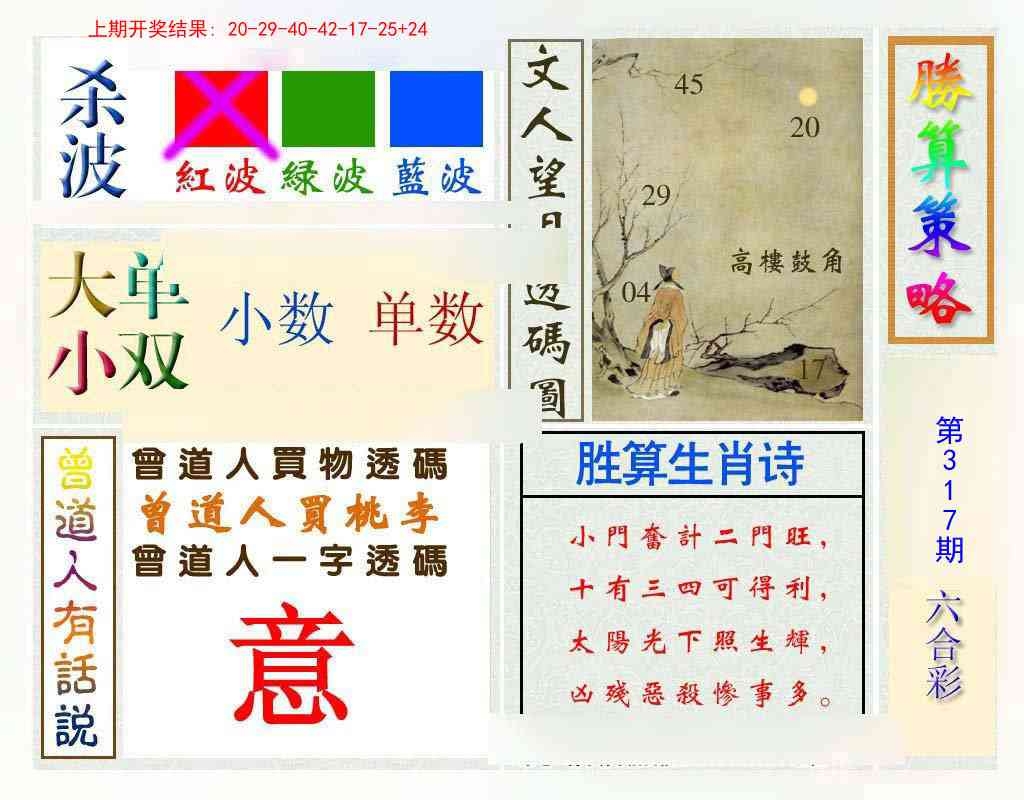 上期开奖结果：20-29-40-42-17-25+24
杀波
紅波 緑波 藍波
大小
单双
小数 单数
文人望
透碼圖
45
20
29
高樓鼓角
04
17
勝算策略
第317期
六合彩
曾道人有話説
曾道人買物透碼
曾道人買桃李
曾道人一字透碼
意
胜算生肖诗
小門奮計二門旺，
十有三四可得利，
太陽光下照生輝，
凶殘惡殺慘事多。